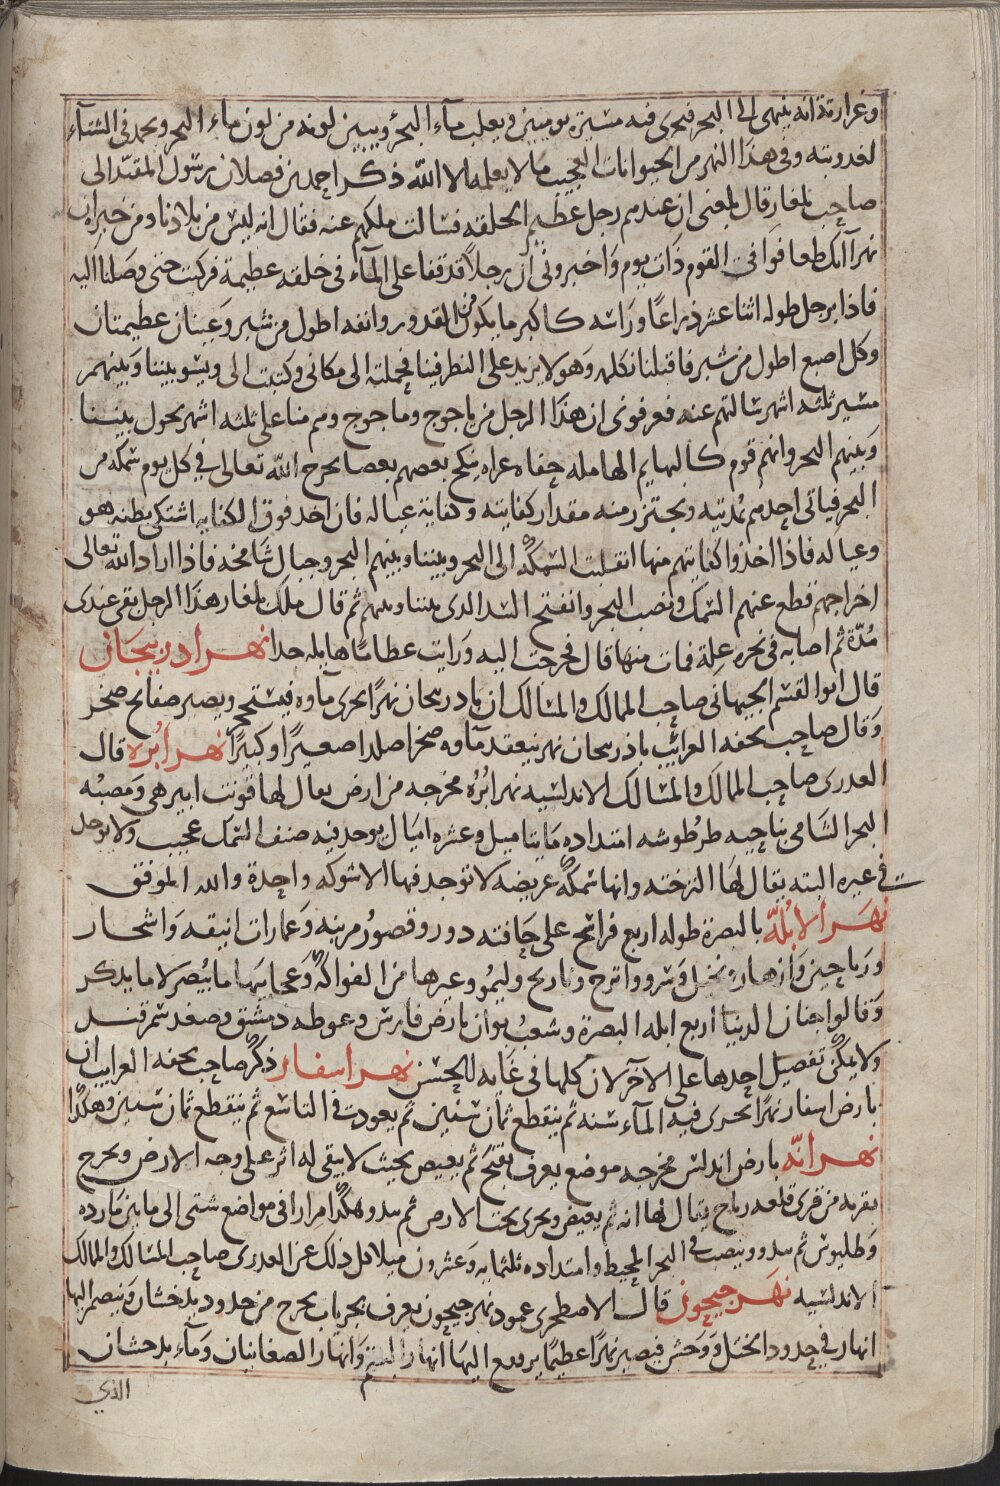 وغزارته انه ينتهى الى البحر فيجرى فيه مسيرة يومين ويغلب ماء البحر ويبين لونه من لون ماء البحر ويجمد فى الشتاء
لعذوبته وفى هذا النهر من الحيوانات العجيب ما لا يعلمه الا الله ذكر احمد بن فصلان رسول المقتدر الى
صاحب بلغار قال بلغنى ان عندهم رجل عظيم الخلقه فسالت ملكهم عنه فقال انه ليس من بلادنا ومن خبره ان
نهر اتل طغا فوافى القوم ذات يوم واخبرونى ان رجلا قد قفا على الماء فى خلقه عظيمة فركبت حتى وصلنا اليه
فاذا برجل طوله اثنا عشر ذراعا وراسه كاكبر ما يكون من القدور وانفه اطول من شبر وعينان عظيمتان
وكل اصبع اطول من شبر فاقبلنا نكلمه وهو لا يزيد على النظر فينا فحملته الى مكانى وكتبت الى ويسو بيننا وبينهم
مسيرة ثلثه اشهر سالتهم عنه فعرفونى ان هذا الرجل من ياجوج وماجوج وهم منا على ثلثه اشهر يحول بيننا
وبينهم البحر وانهم قوم كالبهايم الهامله حفاه عراه ينكح بعضهم بعضا يخرج الله تعالى فى كل يوم سمكه من
البحر فياتى احدهم بمديته ويجتز منه مقدار كفايته وكفاية عياله فان اخذ فوق الكفايه اشتكى بطنه هو
وعياله فاذا اخذوا كفايتهم منها انقلبت السمكه الى البحر وبيننا وبينهم البحر وجبال شامخه فاذا اراد الله تعالى
اخراجهم قطع عنهم السمك ونصب البحر وانفتح السد الذى بيننا وبينهم ثم قال ملك بلغار هذا الرجل بقى عندى
مدة ثم اصابه فى نحره علة فمات منها قال فخرجت اليه ورايت عظاما هايله جدا نهر اذربيجان
قال ابو القسم الجيهانى صاحب الممالك والمسالك ان باذربيجان نهرا يجرى ماوه فيستحجر ويصير صفايح صخر
وقال صاحب تحفه الغرائب باذربيجان نهر ينعقد ماوه صخرا صلدا صغيرا وكبيرا نهر ابره قال
العدرى صاحب الممالك والمسالك الاندلسيه نهر ابره مخرجه من ارض يقال لها قونت ايبر هى ومصبه
البحر الشامى بناحيه طرطوشه امتداده مايتا ميل وعشره اميال يوجد فيه صنف السمك عجيب ولا يوجد
فى غيره البته يقال لها الترخته وانها سمكه عريضه لا توجد فيها الا شوكه واحدة والله الموفق
نهر الابله بالبصرة طوله اربع فراسخ على حافته دور وقصور مزينه وعمارات انيقه واشجار
ورياحين وازهار ونخيل وسرو واترج ونارنج وليمو وغيرها من الفواكه وعجايبها ما يبصر لا ما يذكر
وقالوا جنان الدنيا اربع ابله البصرة وشعب بوان بارض فارس وغوطه دمشق وصغد سمرقند
ولا يمكن تفضيل احدها على الاخر لان كلها فى غايه الحسن نهر اسفار ذكر صاحب تحفه الغرايب ان
بارض اسفار نهرا يجرى فيه الماء سنه ثم ينقطع ثمان سنين ثم يعود فى التاسع ثم ينقطع ثمان سنين وهكذا
نهر انه بارض اندلس مخرجه موضع يعرف بفتح ثم يغيض بحيث لا يبقى له اثر على وجه الارض ويخرج
بقريه من قرى قلعه رباح يقال لها انه ثم يغيض ويجرى تحت الارض ثم يبدو وهكذا مرارا فى مواضع شتى الى ما بين مارده
وبطليوس ثم يبدو وينصب فى البحر المحيط وامتداده ثلثمايه وعشرون ميلا قال ذلك عن العدرى صاحب المسالك والممالك
الاندلسيه نهر جيحون قال الاصطخرى عمود نهر جيحون يعرف بجرياب يخرج من حدود بذخشان وينضم اليها
انهار فى حدود الختل ووخش فيصير نهرا عظيما يرفع اليها انهار البتم وانهار الصغانيان وماء بدخشان
الذي